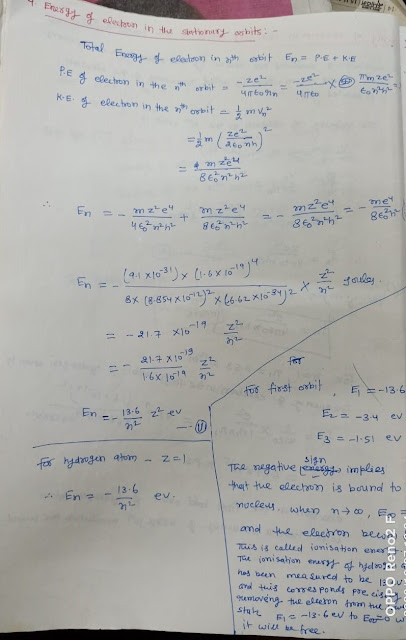 4. Energy of electron in the stationary orbits:-
Total Energy of electron in nth orbit En = P.E + K.E
P.E of electron in the nth orbit = -ze²/4πε₀rn = -ze²/4πε₀ × πmze²/ε₀n²h² =
K.E. of electron in the nth orbit = 1/2 m vn²
= 1/2 m (ze²/2ε₀nh)²
= mz²e⁴/8ε₀²n²h²
∴ En = - mz²e⁴/4ε₀²n²h² + mz²e⁴/8ε₀²n²h² = - mz²e⁴/8ε₀²n²h² = - me⁴/8ε₀²h²
En = - (9.1 ×10⁻³¹) × (1.6 ×10⁻¹⁹)⁴ / 8× (8.854 ×10⁻¹²)² × (6.62 ×10⁻³⁴)² × z²/n² Joules.
= - 21.7 ×10⁻¹⁹ z²/n²
= - 21.7 ×10⁻¹⁹/1.6 × 10⁻¹⁹ z²/n²
En = - 13.6/n² z² ev
for hydrogen atom - z=1
∴ En = - 13.6/n² ev.
for first orbit, E₁ = -13.6
E₂ = -3.4 ev
E₃ = -1.51 ev
The negative sign implies
that the electron is bound to
nucleus. when n→∞, E∞ =
and the electron
This is called ionisation
The ionisation energy of
has been measured to be 13
and this corresponds
removing the electron from the
state E₁ = -13.6 ev to E∞=0
it will be free.
OPPO Reno2 F